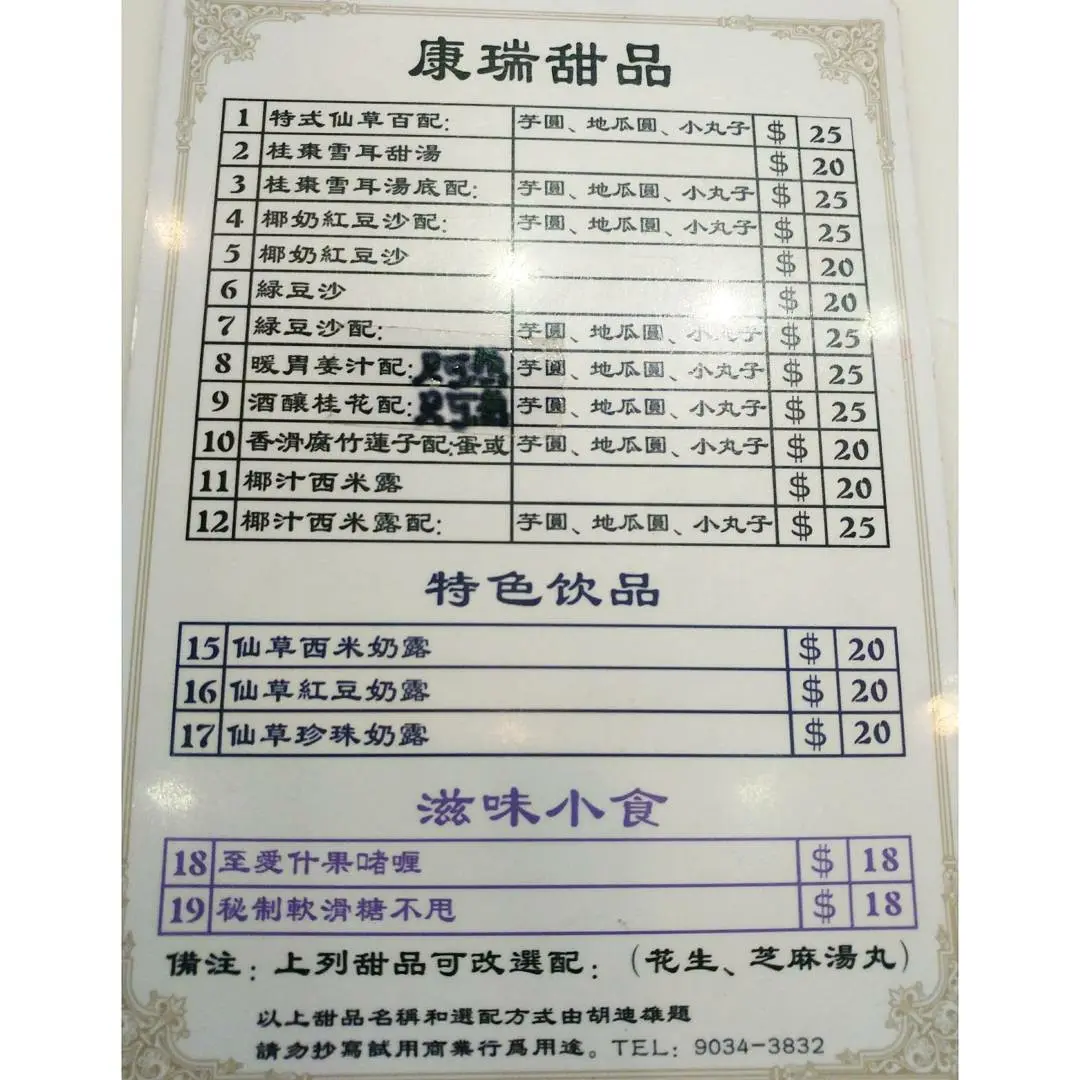 康瑞甜品
1 特式仙草百配: 芋圓、地瓜圓、小丸子 $ 25
2 桂棗雪耳甜湯 $ 20
3 桂棗雪耳湯底配: 芋圓、地瓜圓、小丸子 $ 25
4 椰奶紅豆沙配: 芋圓、地瓜圓、小丸子 $ 25
5 椰奶紅豆沙 $ 20
6 緑豆沙 $ 20
7 緑豆沙配: 芋圓、地瓜圓、小丸子 $ 25
8 暖胃姜汁配: 芋圓、地瓜圓、小丸子 $ 25
9 酒釀桂花配: 芋圓、地瓜圓、小丸子 $ 25
10 香滑腐竹蓮子配:蛋或 芋圓、地瓜圓、小丸子 $ 20
11 椰汁西米露 $ 20
12 椰汁西米露配: 芋圓、地瓜圓、小丸子 $ 25
特色饮品
15 仙草西米奶露 $ 20
16 仙草紅豆奶露 $ 20
17 仙草珍珠奶露 $ 20
滋味小食
18 至愛什果啫喱 $ 18
19 秘制軟滑糖不甩 $ 18
備注:上列甜品可改選配:(花生、芝麻湯丸)
以上甜品名稱和選配方式由胡迪雄題
請勿抄寫試用商業行爲用途。TEL: 9034-3832